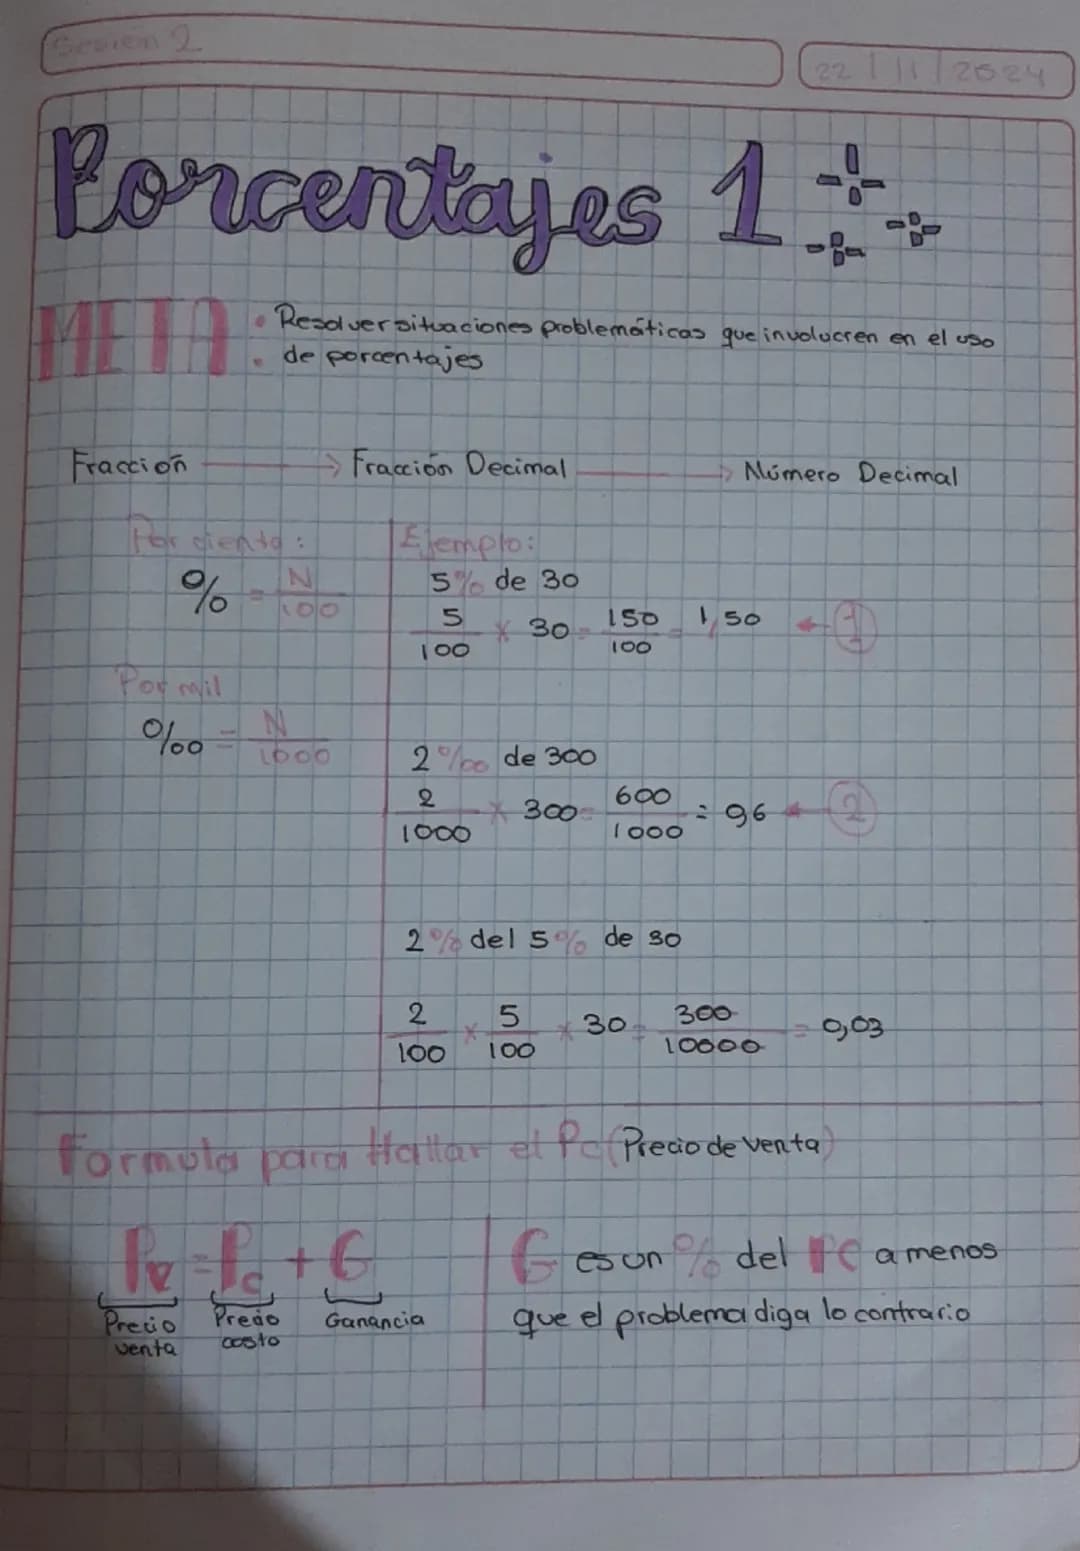 Sesión 2
22 / 11 / 2024
Porcentajes 1
META
• Resolver situaciones problemáticas que involucren en el uso
• de porcentajes
Fracción → Fracción Decimal → Número Decimal
Por ciento:
% = N/100
Ejemplo:
5% de 30
5/100 × 30 = 150/100 = 1,50 ← 1
Por mil
‰ = N/1000
2‰ de 300
2/1000 × 300 = 600/1000 = 96 ← 2
2% del 5% de 30
2/100 × 5/100 × 30 = 300/10000 = 0,03
Formula para Hallar el Pc (Precio de venta)
Pv = Pc + G
Precio venta
Precio costo
Ganancia
G es un % del PC a menos
que el problema diga lo contrario